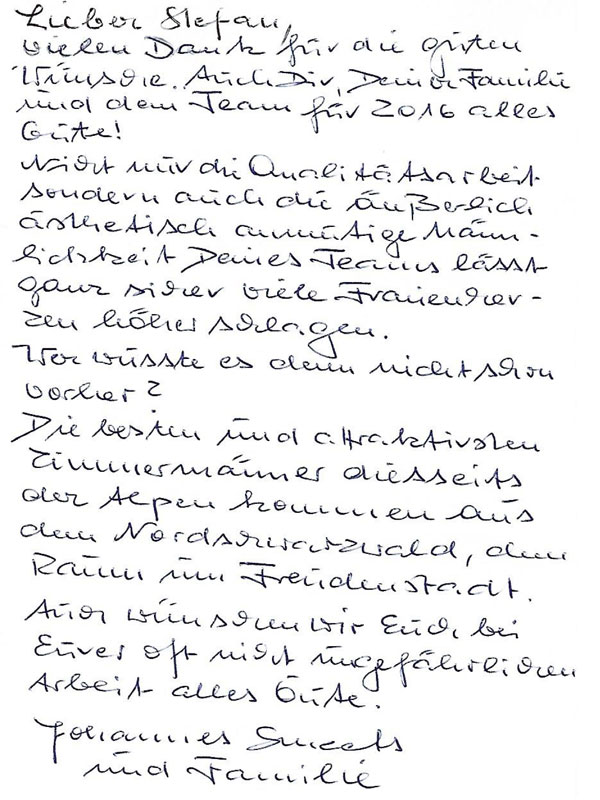 Lieber Stefan,
vielen Dank für die guten
Wünsche. Auch Dir, Deiner Familie
und dem Team für 2016 alles
Gute!
Nicht nur die Qualitätsarbeit
sondern auch die äußerlich
ästhetisch anmutige Männ-
lichkeit Deines Teams lässt
ganz sicher viele Frauenher-
zen höher schlagen.
Wer wüsste es denn nicht schon
vorher?
Die besten und attraktivsten
Zimmermänner diesseits
der Alpen kommen aus
dem Nordschwarzwald, dem
Raum um Freudenstadt.
Auch wünschen wir Euch bei
Eurer oft nicht ungefährlichen
Arbeit alles Gute.
Johannes Smeets
und Familie